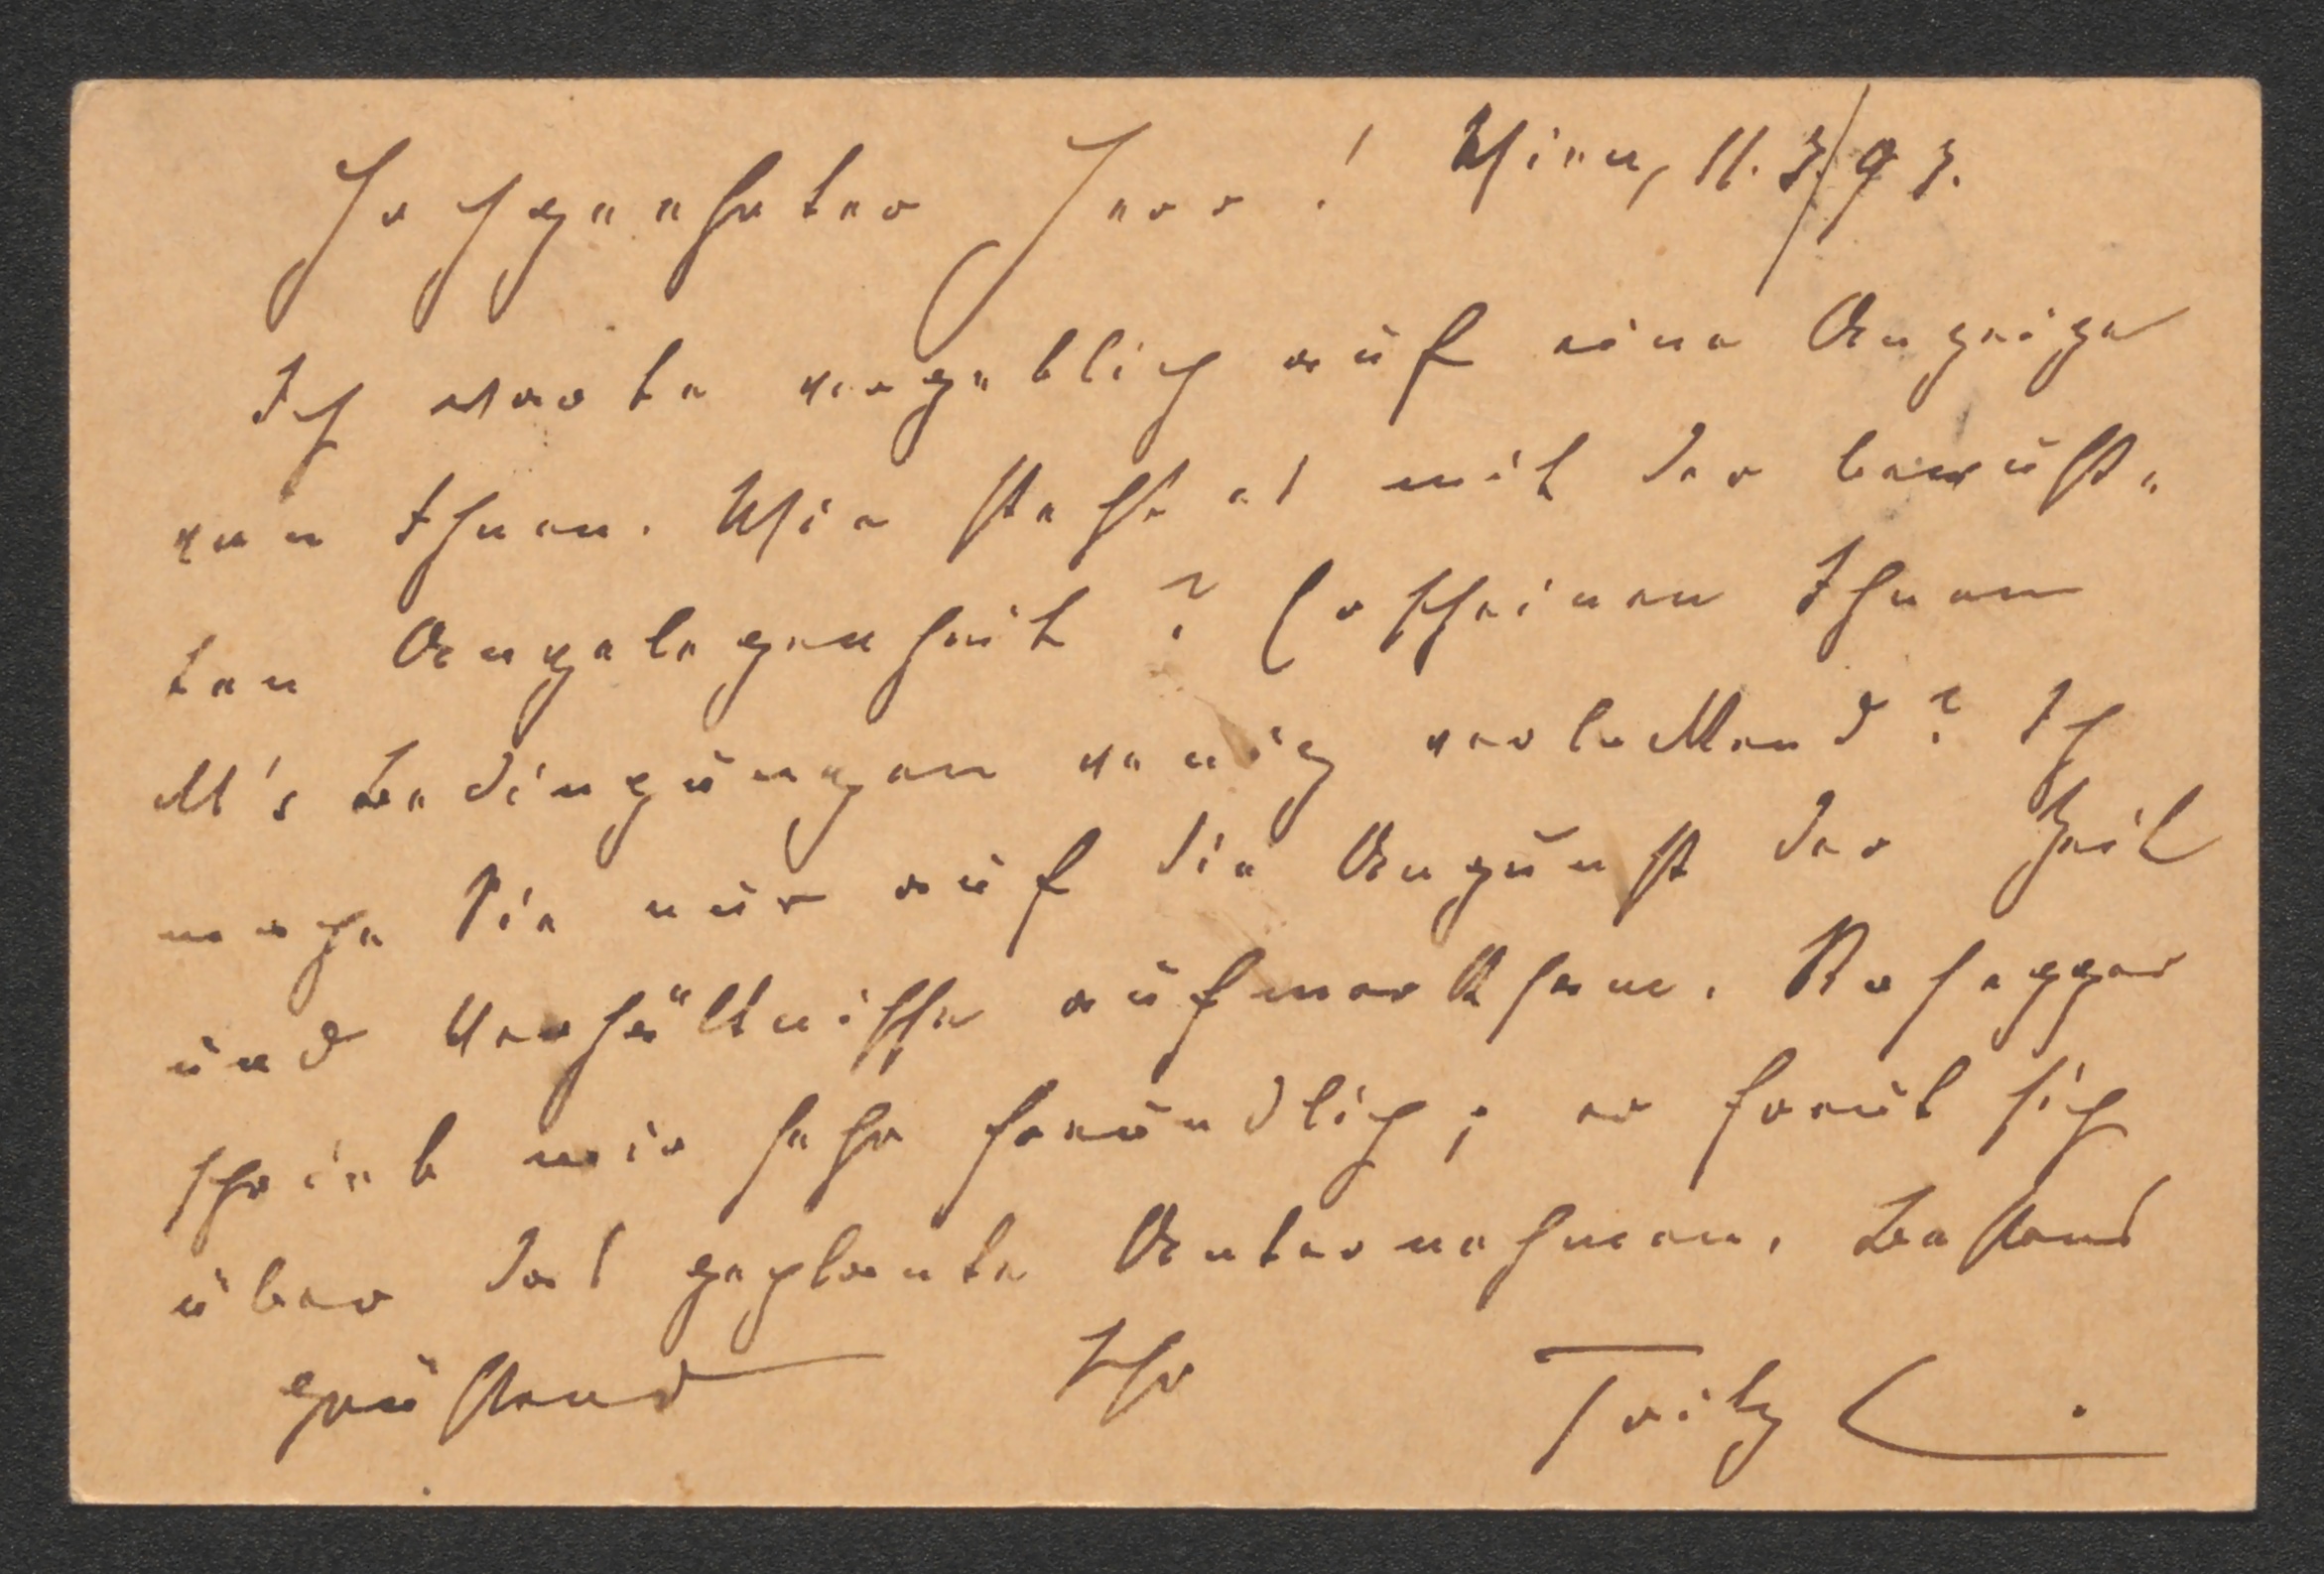 Hochgeehrter Herr! Wien, 11.3./93.
Ich warte vergeblich auf eine Anzeige
von Ihnen. Wie steht es mit der bewuß-
ten Angelegenheit? Erscheinen Ihnen
M's Bedingungen wenig verlockend? Ich
mache Sie nur auf die Ungunst der Zeit
und Verhältnisse aufmerksam. Rosegger
schrieb mir sehr freundlich; er freut sich
über das geplante Unternehmen. Bestens
grüßend Ihr Fritz